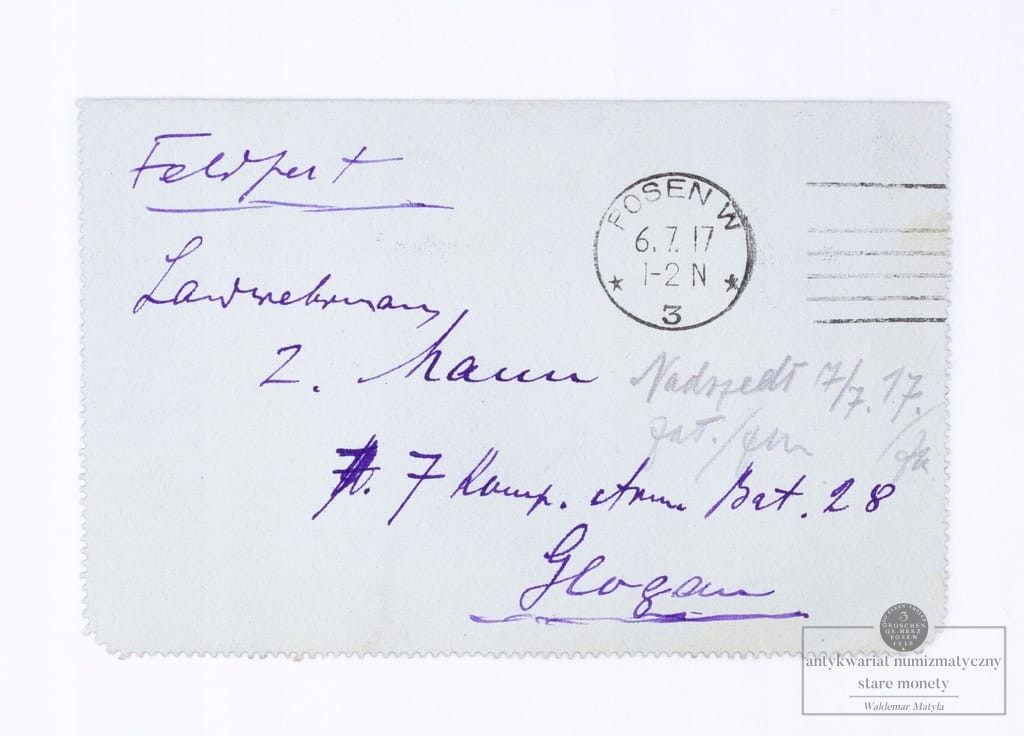 Feldpost
POSEN W
6.7.17
1-2 N
3
Landwehrmann
L. Mann
7 Komp. Arm. Bat. 28
Glogau
7/7.17.
3
GROSCHEN
GR. HERZ
POSEN
antykwariat numizmatyczny
stare monety
Waldemar Matyla